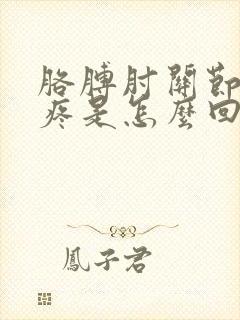 胳膊肘關節
疼是怎麼回
鳳子君